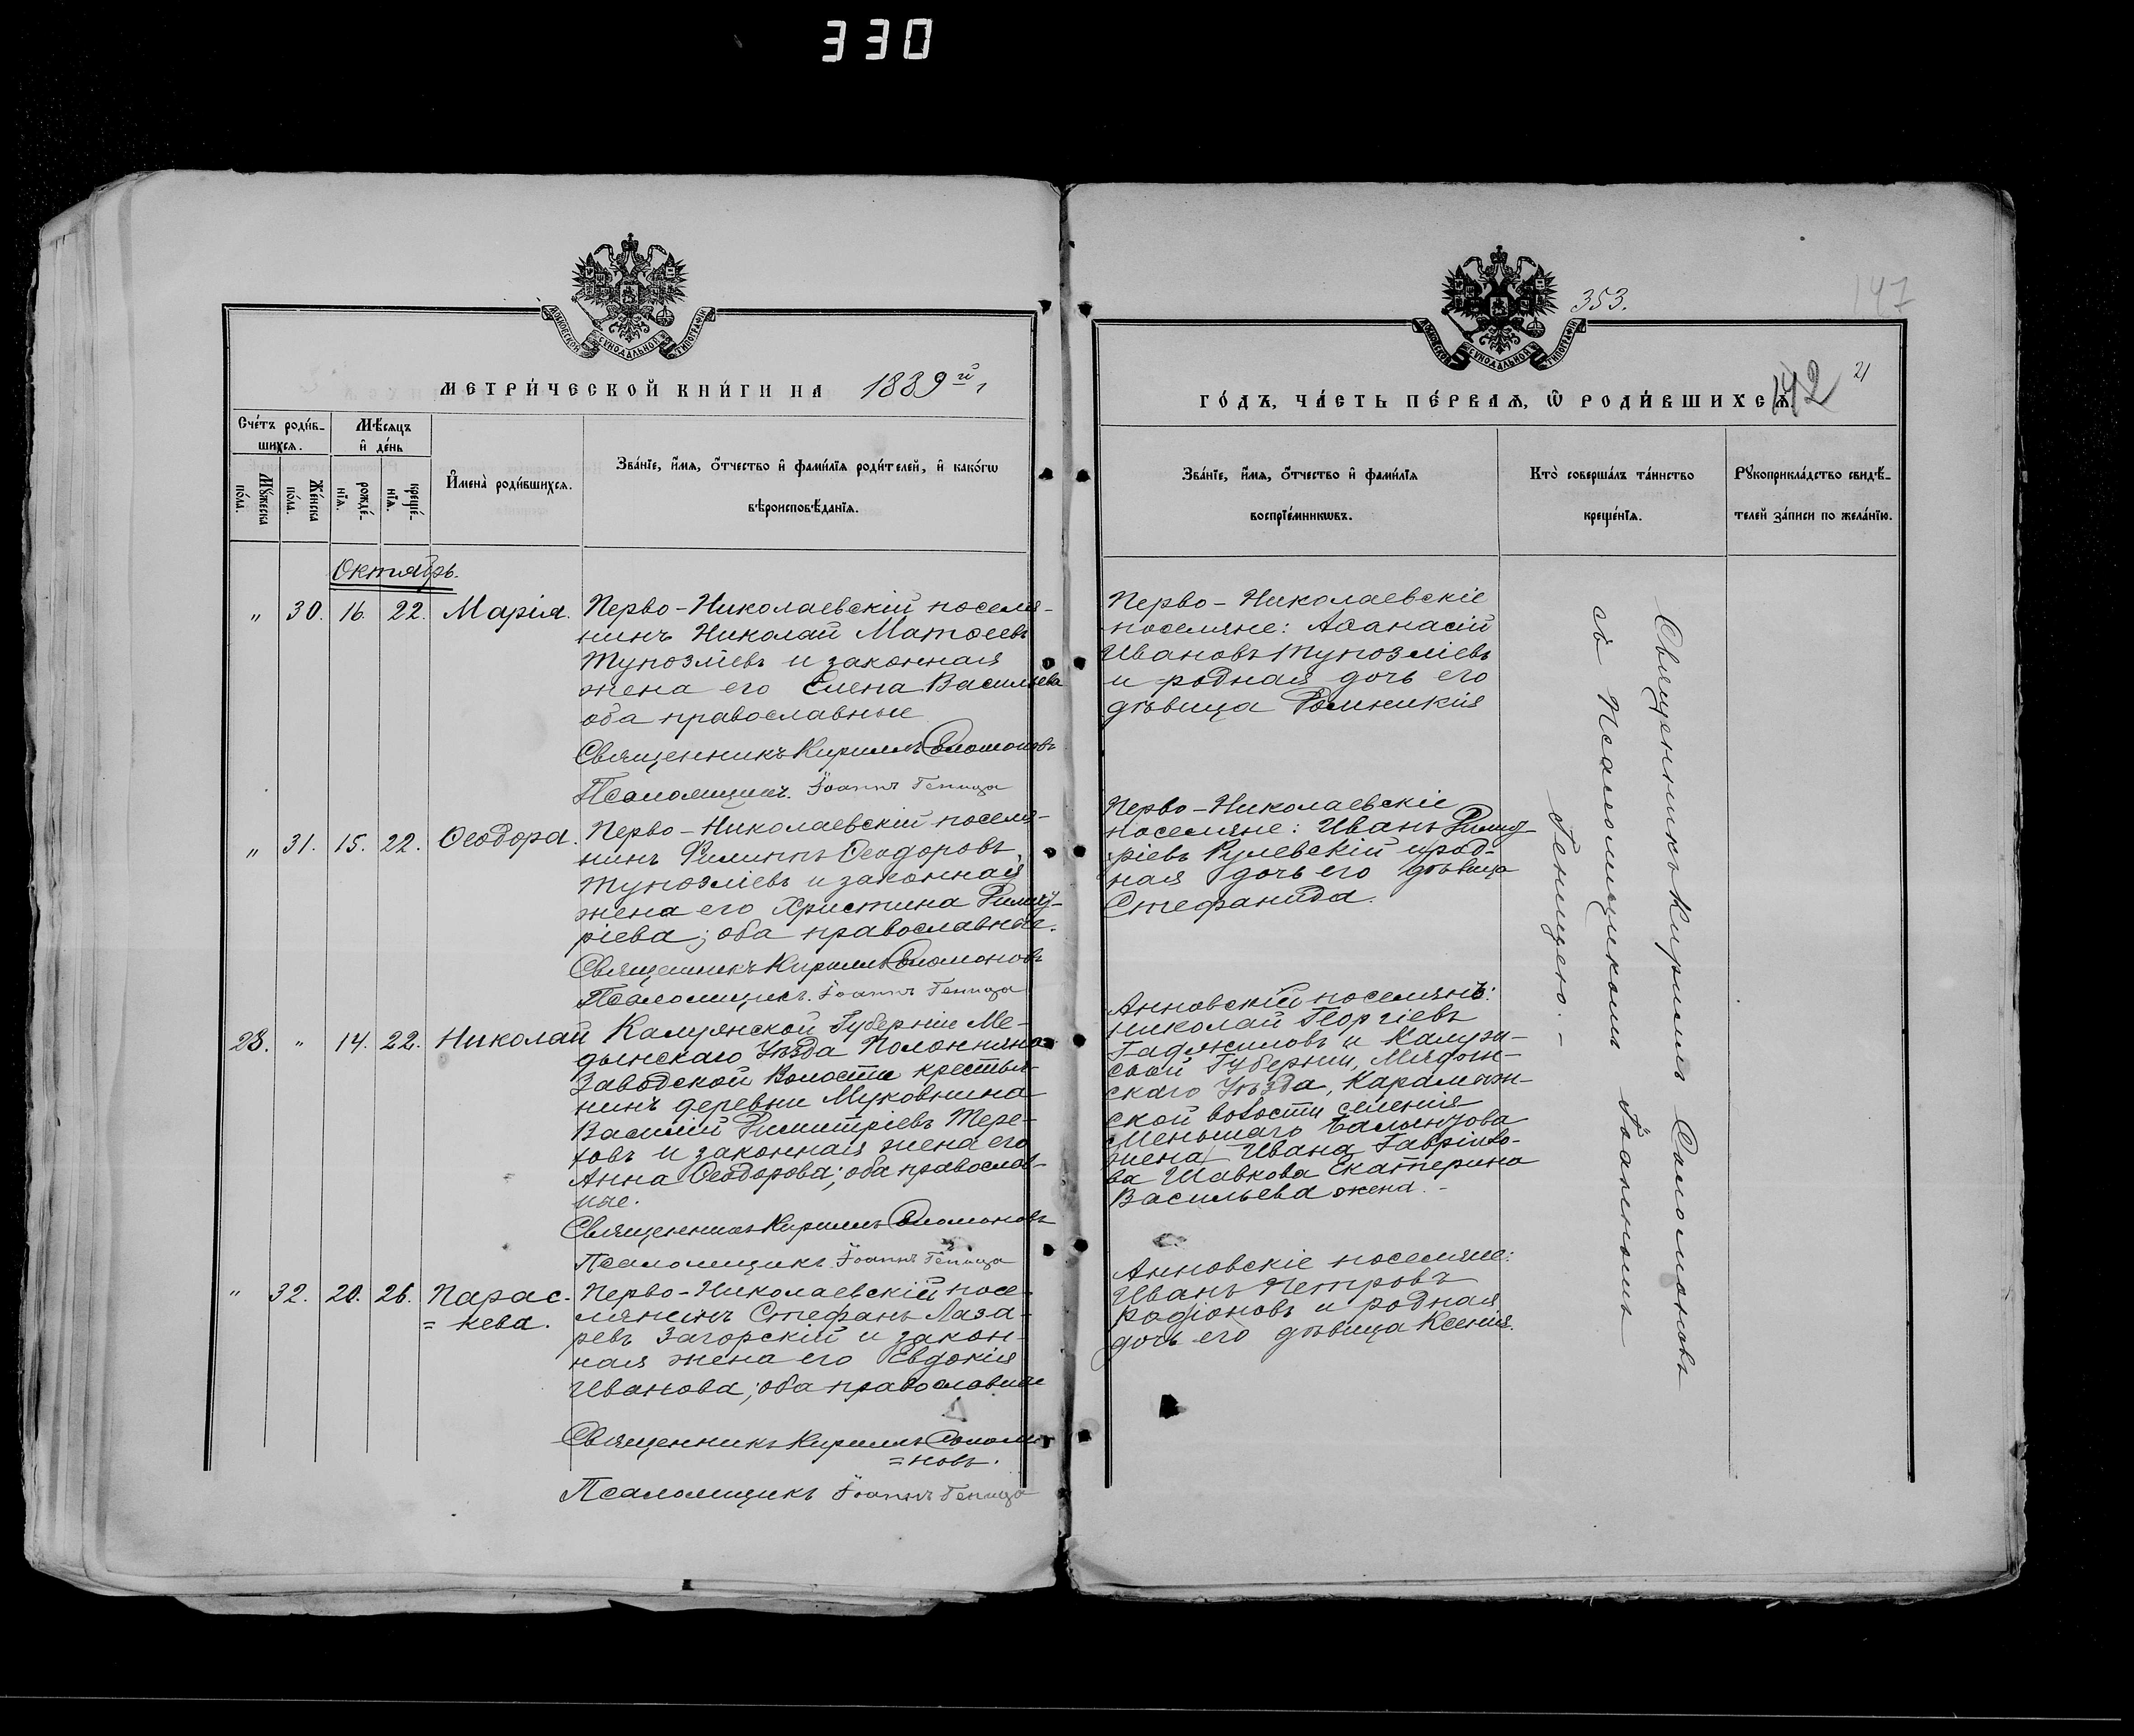 330
МОСКОВСКОЙ СѴНОДАЛЬНОЙ ТИПОГРАФІИ
МЕТРИ́ЧЕСКОЙ КНИ́ГИ НА 1889 й г
Сче́тъ роди́в-
шихсѧ.
Мѣ́сѧцъ
и҆ де́нь
Мꙋ́жеска
по́ла.
Же́нска
по́ла.
рожде́-
нїѧ.
креще́-
нїѧ.
И҆мена̀ роди́вшихсѧ.
Зва́нїе, и҆́мѧ, ѻ҆́тчество и҆ фами́лїѧ роди́телей, и҆ како́гѡ
вѣроисповѣ́данїѧ.
Октябрь.
" 30. 16. 22. Марія. Перво-Николаевскій поселя-
нинъ Николай Матѳеевъ
Тупозліевъ и законная
жена его Елена Васильева
оба православные
Священникъ Кириллъ Соломоновъ
Псаломщикъ Іоаннъ Геница
" 31. 15. 22. Ѳеодора. Перво-Николаевскій поселя-
нинъ Филиппъ Ѳеодоровъ
Тупозліевъ и законная
жена его Христина Димит-
ріева; оба православные.
Священникъ Кириллъ Соломоновъ
Псаломщикъ Іоаннъ Геница
28. " 14. 22. Николай Калужской Губерніи Ме-
дынскаго Уѣзда
Заводской Волости крестья-
нинъ деревни Муковнина
Василій Димитріевъ Тере-
ховъ и законная жена его
Анна Ѳеодорова; оба православ-
ные.
Священникъ Кириллъ Соломоновъ
Псаломщикъ Іоаннъ Геница
" 32. 20. 26. Парас-
=кева.
Перво-Николаевскій посе-
лянинъ Стефанъ Лаза-
ревъ Загорскій и закон-
ная жена его Евдокія
Иванова; оба православные
Священникъ Кириллъ Соломо-
=новъ.
Псаломщикъ Іоаннъ Геница
353.
147
МОСКОВСКОЙ СѴНОДАЛЬНОЙ ТИПОГРАФІИ
142
21
ГО́ДЪ, ЧА́СТЬ ПЕ́РВАѦ, Ѡ҆ РОДИ́ВШИХСѦ
Зва́нїе, и҆́мѧ, ѻ҆́тчество и҆ фами́лїѧ
воспрїе́мникѡвъ.
Кто̀ соверша́лъ та́инство
креще́нїѧ.
Рꙋкоприкла́дство свидѣ́-
телей за́писи по жела́нїю.
Перво-Николаевскіе
поселяне: Аѳанасій
Ивановъ Тупозліевъ
и родная дочь его
дѣвица Домникія
Перво-Николаевскіе
поселяне: Иванъ Димит-
ріевъ Рулевскій и род-
ная дочь его дѣвица
Стефанида.
Анновскій поселянъ:
Николай Георгіевъ
Гаджиловъ и Калуж-
ской Губерніи,
скаго Уѣзда,
ской волости селенія
Меньшаго
жена Ивана Гаврило-
ва Шавкова Екатерина
Васильева жена. -
Анновскіе поселяне:
Иванъ Петровъ
Радіоновъ и родная
дочь его дѣвица Ксенія.
Священникъ Кириллъ Соломоновъ
съ Псаломщикомъ Іоанномъ
Геницею. -